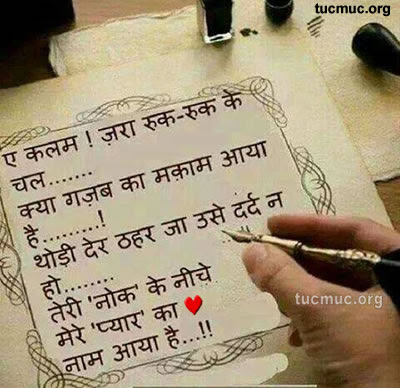 tucmuc.org
ए कलम ! ज़रा रुक-रुक के
चल.......
क्या गज़ब का मक़ाम आया
है.........!
थोड़ी देर ठहर जा उसे दर्द न
हो........
तेरी 'नोक' के नीचे
मेरे 'प्यार' का ❤
नाम आया है...!!
tucmuc.org